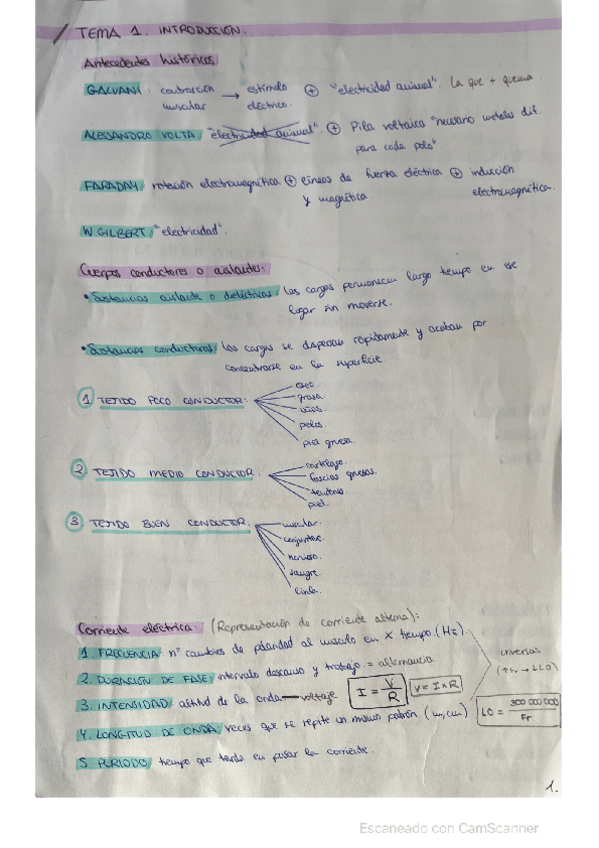 TEMA 1. INTRODUCCIÓN.
Antecedentes históricos:
GALVANI: contracción muscular → estímulo eléctrico. ⊕ "electricidad animal". La que + quema
ALESSANDRO VOLTA: "electricidad animal". ⊕ Pila voltaica "necesario metales dif.
para cada polo".
FARADAY: rotación electromagnética ⊕ líneas de fuerza eléctrica y magnítica ⊕ inducción electromagnética.
W. GILBERT: "electricidad".
Cuerpos conductores o aislantes:
• Sustancias aislante o dieléctricas: las cargas permanecen largo tiempo en ese
lugar sin moverse.
• Sustancias conductoras: las cargas se dispersan rápidamente y acaban por
concentrarse en la superficie
1 TEJIDO POCO CONDUCTOR:
óseo.
grasa
uñas.
pelos.
piel gruesa.
2 TEJIDO MEDIO CONDUCTOR.
cartílago.
fascias gruesas.
tendones.
piel.
3 TEJIDO BUEN CONDUCTOR
muscular.
conjuntivo.
nervioso.
sangre
linfa.
Corriente eléctrica: (Representación de corriente alterna):
1. FRECUENCIA: nº cambios de polaridad al minuto en X tiempo. (Hz)
2. DURACIÓN DE FASE: intervalo descanso y trabajo = alternancia
3. INTENSIDAD: altitud de la onda — voltaje I = V/R V = I × R
inversas
4. LONGITUD DE ONDA: veces que se repite un mismo patrón. (m, cm)
LO = 300 000 000 / Fr
5. PERIODO: tiempo que tarda en pasar la corriente.
1.
Escaneado con CamScanner